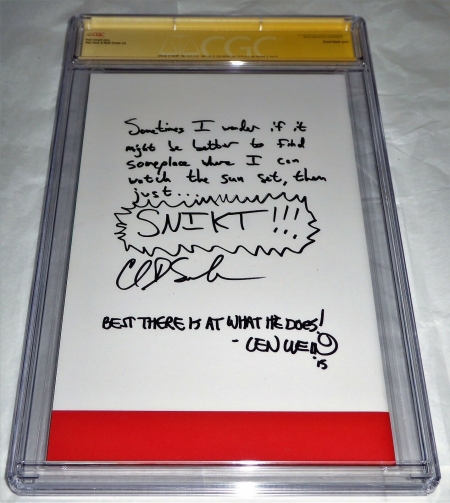 CGC
Sometimes I wonder if it
might be better to find
someplace where I can
watch the sun set, then
just...
SNIKT!!!
BEST THERE IS AT WHAT HE DOES!
- LEN WEIN
15